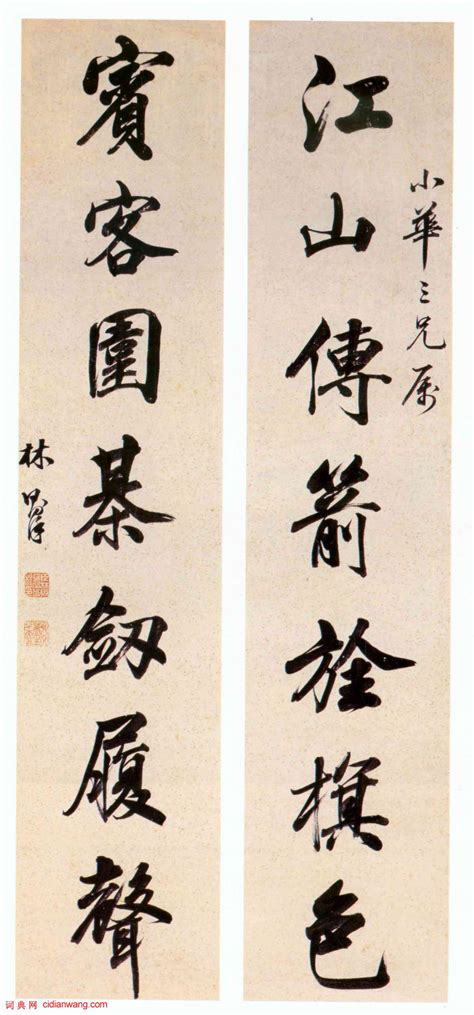 江山傳箭旌旗色
小華三兄属
賓客圍棊劒履聲
林則徐
词典网 cidianwang.com